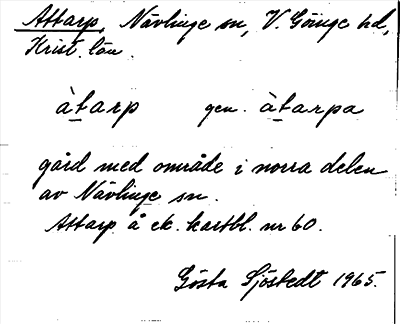 Attarp, Nävlinge sn, V. Göinge hd,
Krist. län.
àtarp gen. àtarpa
gård med område i norra delen
av Nävlinge sn.
Attarp å ek. kartbl. nr 60.
Gösta Sjöstedt 1965.